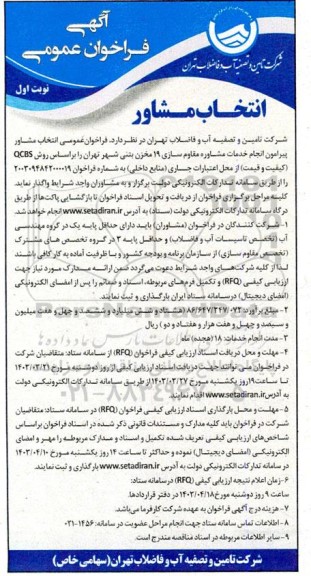 آگهی
فراخوان عمومی
شرکت تأمین و تصفیه آب و فاضلاب تهران
نوبت اول
انتخاب مشاور
شرکت تامین و تصفیه آب و فاضلاب تهران در نظر دارد، فراخوان عمومی انتخاب مشاور
پیرامون انجام خدمات مشاوره مقاوم سازی ۱۹ مخزن بتنی شهر تهران را براساس روش QCBS
(کیفیت و قیمت) از محل اعتبارات جاری (منابع داخلی) به شماره فراخوان ۲۰۰۳۰۹۴۸۴۲۰۰۰۰۱۹
را از طریق سامانه تدارکات الکترونیکی دولت برگزار و به مشاوران واجد شرایط واگذار نماید.
کلیه مراحل برگزاری فراخوان از دریافت و تحویل اسناد فراخوان تا بازگشایی پاکت‌ها از طریق
درگاه سامانه تدارکات الکترونیکی دولت (ستاد) به آدرس www.setadiran.ir انجام خواهد شد.
۱- شرکت کنندگان در فراخوان (مشاوران) باید دارای حداقل پایه یک در گروه مهندسی
آب (تخصص تاسیسات آب و فاضلاب) و حداقل پایه ۳ در گروه تخصص های مشترک
(تخصص مقاوم سازی) از سازمان برنامه و بودجه کشور و با ظرفیت آماده به کار کافی باشند
لذا از کلیه شرکت‌های واجد شرایط دعوت می‌گردد ضمن ارائه مدارک مورد نیاز جهت
ارزیابی کیفی (RFQ) و تکمیل فرم‌های مربوطه، اسناد و ضمائم را پس از امضای الکترونیکی
(امضای دیجیتال) در سامانه ستاد ایران بارگذاری و ثبت نمایند.
۲- مبلغ برآورد: ۸۶/۶۴۷/۳۴۷/۰۷۲ (هشتاد و شش میلیارد و ششصد و چهل و هفت میلیون
و سیصد و چهل و هفت هزار و هفتاد و دو) ریال
۳- مدت انجام خدمات: ۱۸ (هجده) ماه
۴- مهلت و محل دریافت اسناد ارزیابی کیفی فراخوان (RFQ) از سامانه ستاد: متقاضیان شرکت
در فراخوان می توانند جهت دریافت اسناد ارزیابی کیفی از روز دوشنبه مورخ ۱۴۰۳/۰۳/۲۱
تا ساعت ۱۹ روز یکشنبه مورخ ۱۴۰۳/۰۳/۲۷ از طریق سامانه تدارکات الکترونیکی دولت
به آدرس www.setadiran.ir اقدام نمایند.
۵- مهلت و محل بارگذاری اسناد ارزیابی کیفی فراخوان (RFQ) در سامانه ستاد: متقاضیان
شرکت در فراخوان باید کلیه مدارک و مستندات قانونی ذکر شده در اسناد فراخوان براساس
شاخص‌های ارزیابی کیفی تعریف شده تکمیل و اسناد و مدارک مربوطه را مهر و امضای
الکترونیکی (امضای دیجیتال) نموده و حداکثر تا ساعت ۱۴ روز یکشنبه مورخ ۱۴۰۳/۰۴/۱۰
در سامانه تدارکات الکترونیکی دولت به آدرس www.setadiran.ir بارگذاری و ثبت نمایند.
۶- زمان اعلام نتیجه ارزیابی کیفی (RFQ) در سامانه ستاد:
ساعت ۹ روز دوشنبه مورخ ۱۴۰۳/۰۴/۱۸ در دفتر قراردادها.
۷- هزینه درج آگهی فراخوان به عهده شرکت کارفرما می‌باشد.
۸- اطلاعات تماس سامانه ستاد جهت انجام مراحل عضویت در سامانه: ۱۴۵۶-۰۲۱
۹- سایر اطلاعات مربوط در اسناد مناقصه مندرج است.
شرکت تامین و تصفیه آب و فاضلاب تهران (سهامی خاص)